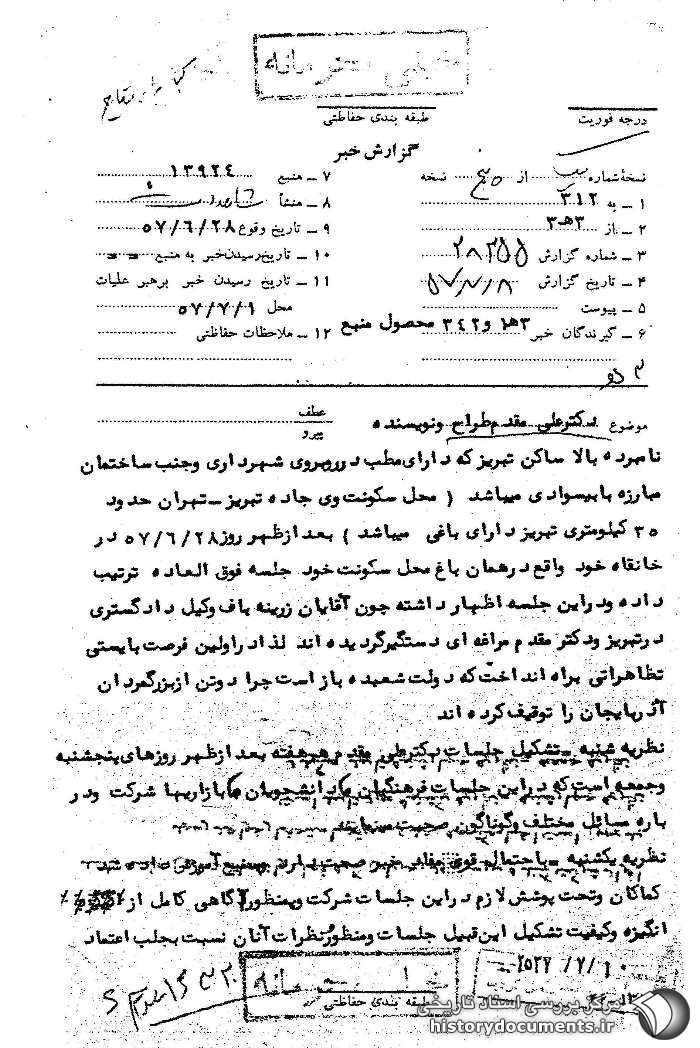 خیلی محرمانه
درجه فوریت
طبقه بندی حفاظتی
گزارش خبر
نسخهٔ شماره از نسخه
۱ ـ به ۳۱۲
۲ ـ از ۳ﻫ۳
۳ ـ شماره گزارش
۴ ـ تاریخ گزارش ۵۷/۷/۸
۵ ـ پیوست
۶ ـ گیرندگان خبر ۳ﻫ۱ و ۳۴۲ محصول منبع
۷ ـ منبع ۱۳۹۲۴
۸ ـ منشأ
۹ ـ تاریخ وقوع ۵۷/۶/۲۸
۱۰ ـ تاریخ رسیدن خبر به منبع
۱۱ ـ تاریخ رسیدن خبر برهبر عملیات
محل ۵۷/۷/۱
۱۲ ـ ملاحظات حفاظتی
موضوع دکترعلی مقدم طراح ونویسنده
عطف
پیرو
نامبرده بالا ساکن تبریز که دارای مطب درروبروی شهرداری وجنب ساختمان
مبارزه بابیسوادی میباشد ( محل سکونت وی جاده تبریز ـ تهران حدود
۳۵ کیلومتری تبریز دارای باغی میباشد ) بعدازظهر روز ۵۷/۶/۲۸ در
خانقاه خود واقع درهمان باغ محل سکونت خود جلسه فوق العاده ترتیب
داده ودراین جلسه اظهار داشته چون آقایان زرینه باف وکیل دادگستری
درتبریز ودکتر مقدم مراغه ای دستگیرگردیده اند لذا دراولین فرصت بایستی
تظاهراتی براه انداخت که دولت شعبده باز است چرا دوتن ازبزرگمردان
آذربایجان را توقیف کرده اند
نظریه شنبه ـ تشکیل جلسات دکترعلی مقدم هرهفته بعدازظهر روزهای پنجشنبه
وجمعه است که دراین جلسات فرهنگیان دانشجویان بازاریها شرکت ودر
باره مسائل مختلف وگوناگون صحبت مینمایند
نظریه یکشنبه ـ باحتمال قوی مفاد خبر صحت دارد بمنبع آموزش داده شد
کماکان وتحت پوشش لازم دراین جلسات شرکت وبمنظور آگاهی کامل از
انگیزه وکیفیت تشکیل این قبیل جلسات ومنظور ونظرات آنان نسبت بجلب اعتماد
۲۵۳۷/۷/۱۰
طبقه بندی حفاظتی
مرکز بررسی اسناد تاریخی
historydocuments.ir